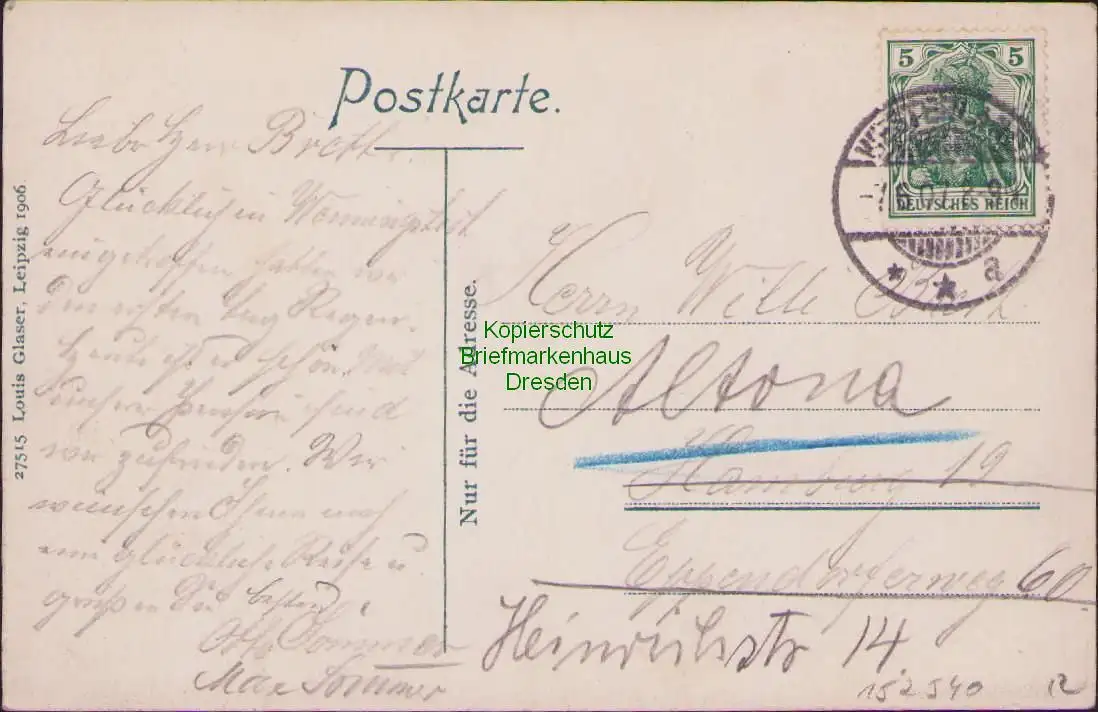 Postkarte.
27515 Louis Glaser, Leipzig 1906.
Nur für die Adresse.
5 5
DEUTSCHES REICH
a
Liebe Herr
Glücklich in Wenningstedt
angetroffen hatten wir
den ersten Tag Regen.
Heute ist es schön. Mit
unserer Pension sind
wir zufrieden. Wir
wünschen Ihnen noch
eine glückliche Reise u.
grüßen Sie bestens
Otto Sommer
Max Sommer
Herrn Willi
Altona
Hamburg 19
Eppendorferweg 60
Heinrichstr 14.
152540 12
Kopierschutz
Briefmarkenhaus
Dresden